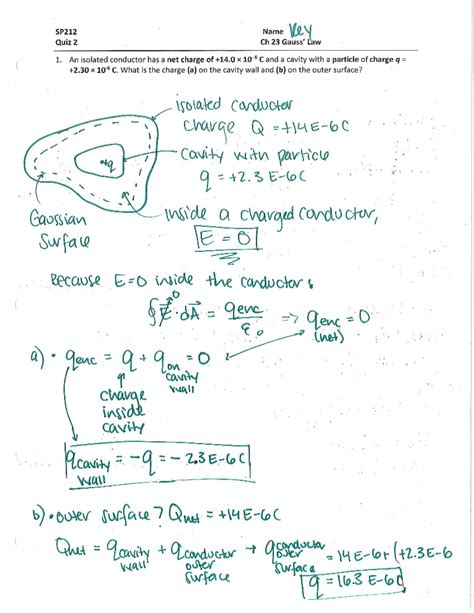 SP212
Name Key
Quiz 2
Ch 23 Gauss' Law
1. An isolated conductor has a net charge of +14.0 × 10⁻⁶ C and a cavity with a particle of charge q =
+2.30 × 10⁻⁶ C. What is the charge (a) on the cavity wall and (b) on the outer surface?
isolated conductor
charge Q = +14E-6C
cavity with particle
q = +2.3E-6C
+q
Gaussian
Surface
inside a charged conductor,
E = 0
Because E=0 inside the conductor:
∮E⃗·dA⃗ = qenc/ε₀ => qenc = 0
0
(net)
a) • qenc = q + q on cavity wall = 0
charge
inside
cavity
q cavity wall = -q = -2.3E-6C
b) • outer surface? Qnet = +14E-6C
Qnet = q cavity wall + q conductor outer surface → q conductor outer surface = 14E-6+(+2.3E-6
q = 16.3E-6C